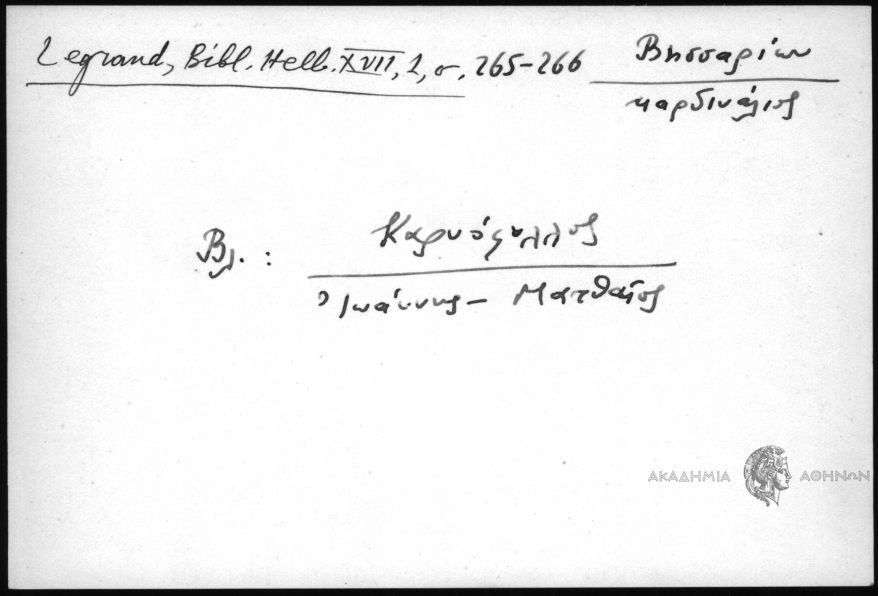 Legrand, Bibl. Hell. XVII, 1, σ. 265-266 Βησσαρίων
καρδινάλιος
Βλ. : Καρυόφυλλος
Ἰωάννης - Ματθαῖος
ΑΚΑΔΗΜΙΑ ΑΘΗΝΩΝ